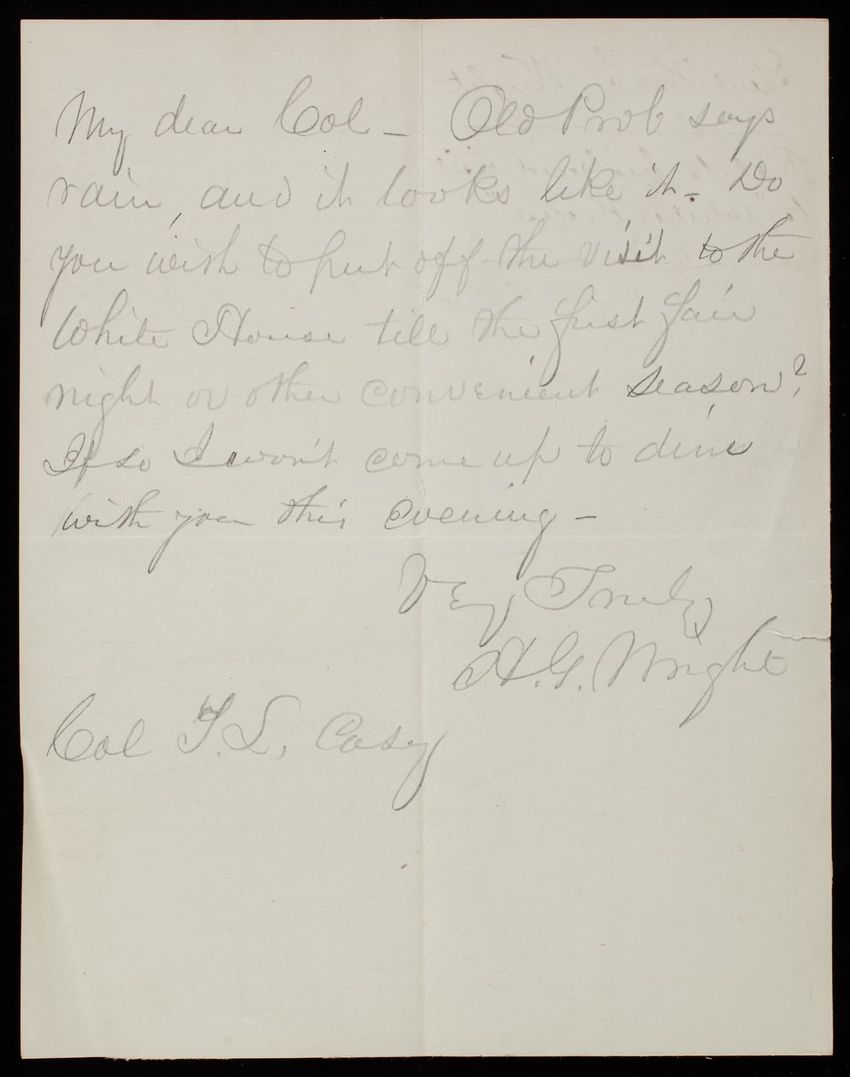 My dear Col – Old Prob says
rain, and it looks like it – Do
you wish to put off the visit to the
White House till the first fair
night or other convenient season?
If so I won't come up to dine
with you this evening –
Very Truly
H. G. Wright
Col T. L. Casey